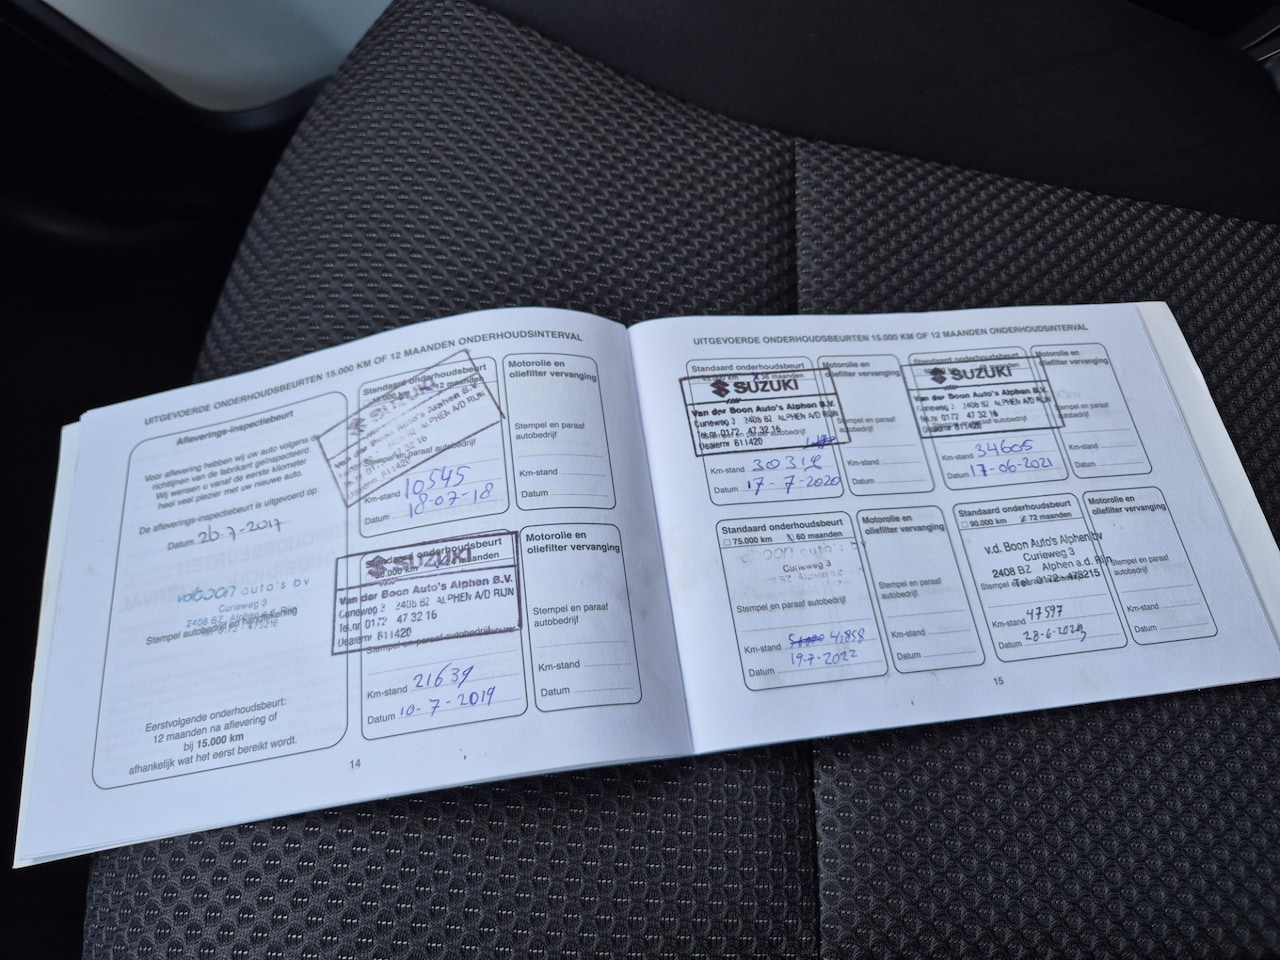 UITGEVOERDE ONDERHOUDSBEURTEN 15.000 KM OF 12 MAANDEN ONDERHOUDSINTERVAL
Afleverings-inspectiebeurt
Voor aflevering hebben wij uw auto volgens de
richtlijnen van de fabrikant geïnspecteerd.
Wij wensen u vanaf de eerste kilometer
heel veel plezier met uw nieuwe auto.
De afleverings-inspectiebeurt is uitgevoerd op:
Datum 26-7-2017
auto's bv
Curieweg 3
2408 BZ Alphen a.d. Rijn
Stempel autobedrijf en handtekening
Eerstvolgende onderhoudsbeurt:
12 maanden na aflevering of
bij 15.000 km
afhankelijk wat het eerst bereikt wordt.
Standaard onderhoudsbeurt
12 maanden
SUZUKI
Van der Boon Auto's Alphen B.V.
2408 BZ ALPHEN A/D RIJN
0172 47 32 16
611420
Stempel en paraaf autobedrijf
Km-stand 10545
Datum 18-07-18
Motorolie en
oliefilter vervanging
Stempel en paraaf
autobedrijf
Km-stand
Datum
Standaard onderhoudsbeurt
30.000 km 24 maanden
SUZUKI
Van der Boon Auto's Alphen B.V.
Curieweg 3 2408 BZ ALPHEN A/D RIJN
Tel.nr. 0172 47 32 16
Dealernr 611420
Stempel en paraaf autobedrijf
Km-stand 21639
Datum 10-7-2019
Motorolie en
oliefilter vervanging
Stempel en paraaf
autobedrijf
Km-stand
Datum
14
UITGEVOERDE ONDERHOUDSBEURTEN 15.000 KM OF 12 MAANDEN ONDERHOUDSINTERVAL
Standaard onderhoudsbeurt
45.000 km 36 maanden
SUZUKI
Van der Boon Auto's Alphen B.V.
Curieweg 3 2408 BZ ALPHEN A/D RIJN
Tel.nr. 0172 47 32 16
Dealernr 611420
Stempel en paraaf autobedrijf
Km-stand
Datum 17-7-2020
Motorolie en
oliefilter vervanging
Stempel en paraaf
autobedrijf
Km-stand
Datum
Standaard onderhoudsbeurt
SUZUKI
Van der Boon Auto's Alphen B.V.
Curieweg 3 2408 BZ ALPHEN A/D RIJN
Tel.nr. 0172 47 32 16
Dealernr 611420
Km-stand 34605
Datum 17-06-2021
Motorolie en
oliefilter vervanging
Stempel en paraaf
autobedrijf
Km-stand
Datum
Standaard onderhoudsbeurt
75.000 km 60 maanden
auto's bv
Curieweg 3
Stempel en paraaf autobedrijf
Km-stand 41858
Datum 19-7-2022
Motorolie en
oliefilter vervanging
Stempel en paraaf
autobedrijf
Km-stand
Datum
Standaard onderhoudsbeurt
90.000 km 72 maanden
v.d. Boon Auto's Alphen bv
Curieweg 3
2408 BZ Alphen a.d. Rijn
Tel. 0172 - 473215
Stempel en paraaf autobedrijf
Km-stand 47597
Datum
Motorolie en
oliefilter vervanging
Stempel en paraaf
autobedrijf
Km-stand
Datum
15